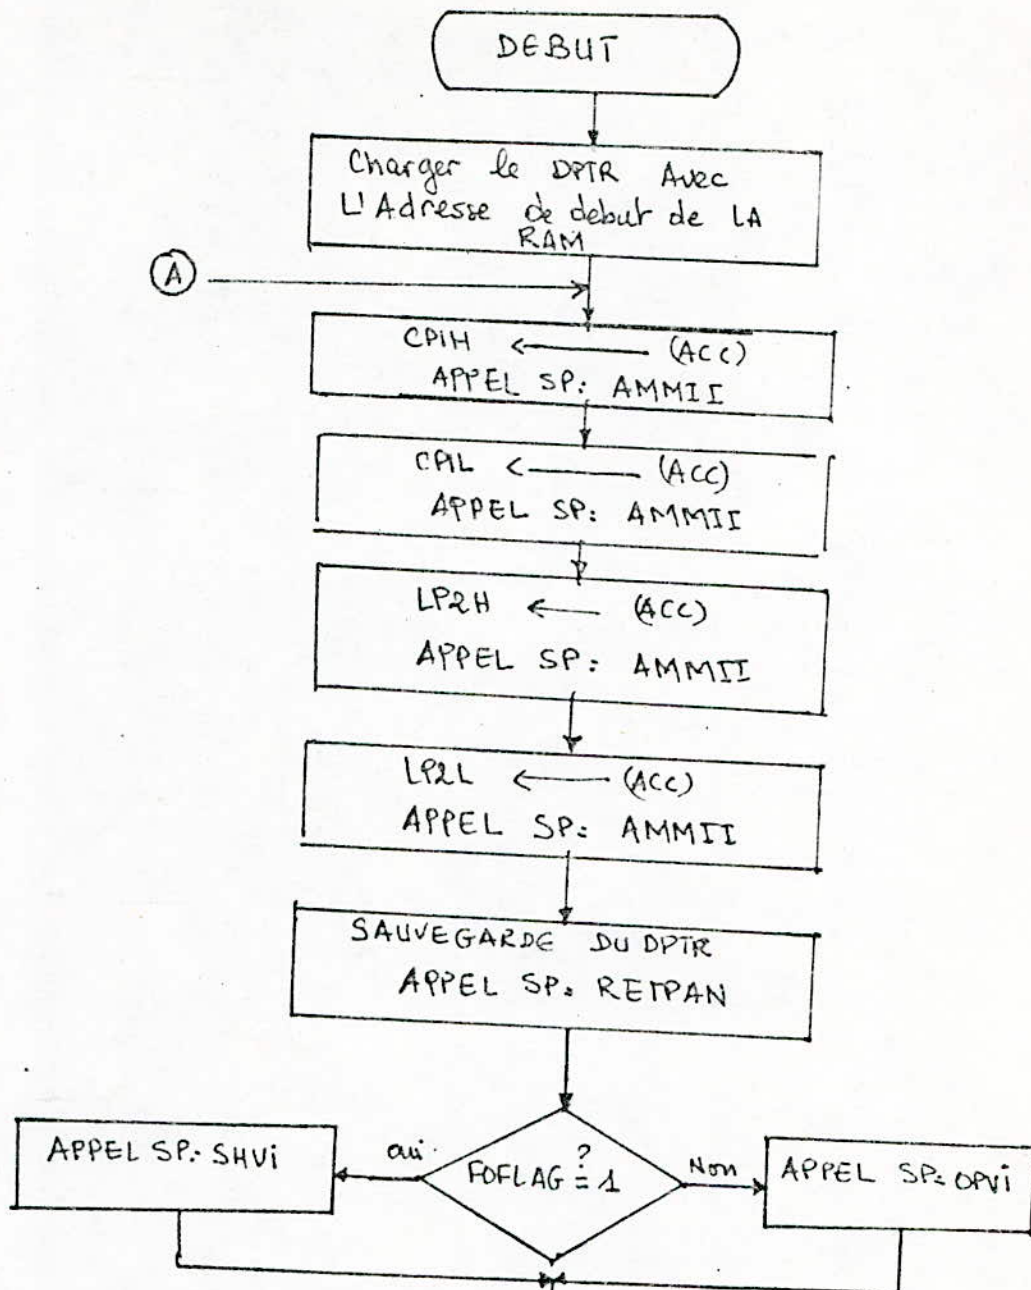 DEBUT
Charger le DPTR Avec
L'Adresse de debut de LA
RAM
A
CPIH ← (ACC)
APPEL SP: AMMII
CPIL ← (ACC)
APPEL SP: AMMII
LP2H ← (ACC)
APPEL SP: AMMII
LP2L ← (ACC)
APPEL SP: AMMII
SAUVEGARDE DU DPTR
APPEL SP: RETPAN
APPEL SP: SHVi
oui
FOFLAG ?= 1
Non
APPEL SP: OPVi